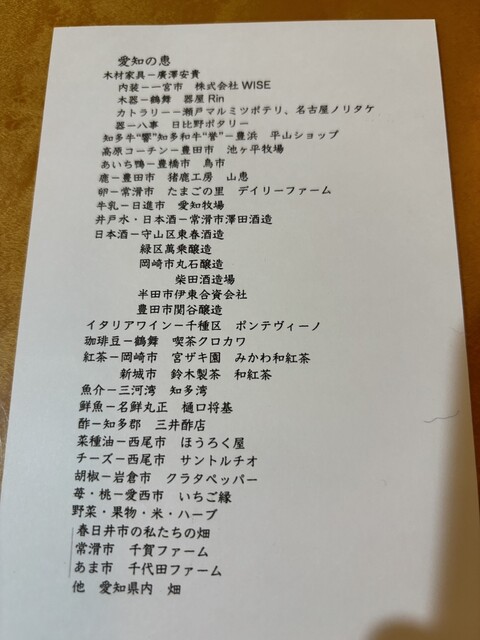 愛知の恵
木材家具－廣澤安貴
内装－一宮市　株式会社 WISE
木器－鶴舞　器屋 Rin
カトラリー－瀬戸マルミツポテリ、名古屋ノリタケ
器－八事　日比野ポタリー
知多牛“響”知多和牛“誉”－豊浜　平山ショップ
高原コーチン－豊田市　池ヶ平牧場
あいち鴨－豊橋市　鳥市
鹿－豊田市　猪鹿工房　山恵
卵－常滑市　たまごの里　デイリーファーム
牛乳－日進市　愛知牧場
井戸水・日本酒－常滑市澤田酒造
日本酒－守山区東春酒造
緑区萬乗醸造
岡崎市丸石醸造
柴田酒造場
半田市伊東合資会社
豊田市関谷醸造
イタリアワイン－千種区　ポンテヴィーノ
珈琲豆－鶴舞　喫茶クロカワ
紅茶－岡崎市　宮ザキ園　みかわ和紅茶
新城市　鈴木製茶　和紅茶
魚介－三河湾　知多湾
鮮魚－名鮮丸正　樋口将基
酢－知多郡　三井酢店
菜種油－西尾市　ほうろく屋
チーズ－西尾市　サントルチオ
胡椒－岩倉市　クラタペッパー
苺・桃－愛西市　いちご縁
野菜・果物・米・ハーブ
春日井市の私たちの畑
常滑市　千賀ファーム
あま市　千代田ファーム
他　愛知県内　畑